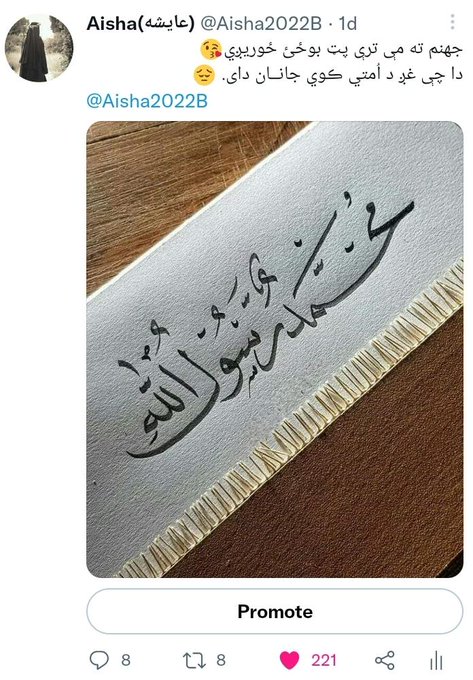 Aisha(عايشه) @Aisha2022B · 1d
جهنم ته مې ترې پټ بوځئ ځورېږي😘
دا چې غږ د اُمتي کوي جانــان دای. 😔
@Aisha2022B
مُحَمَّد رَسُولُ اللهِ
Promote
8 8 221